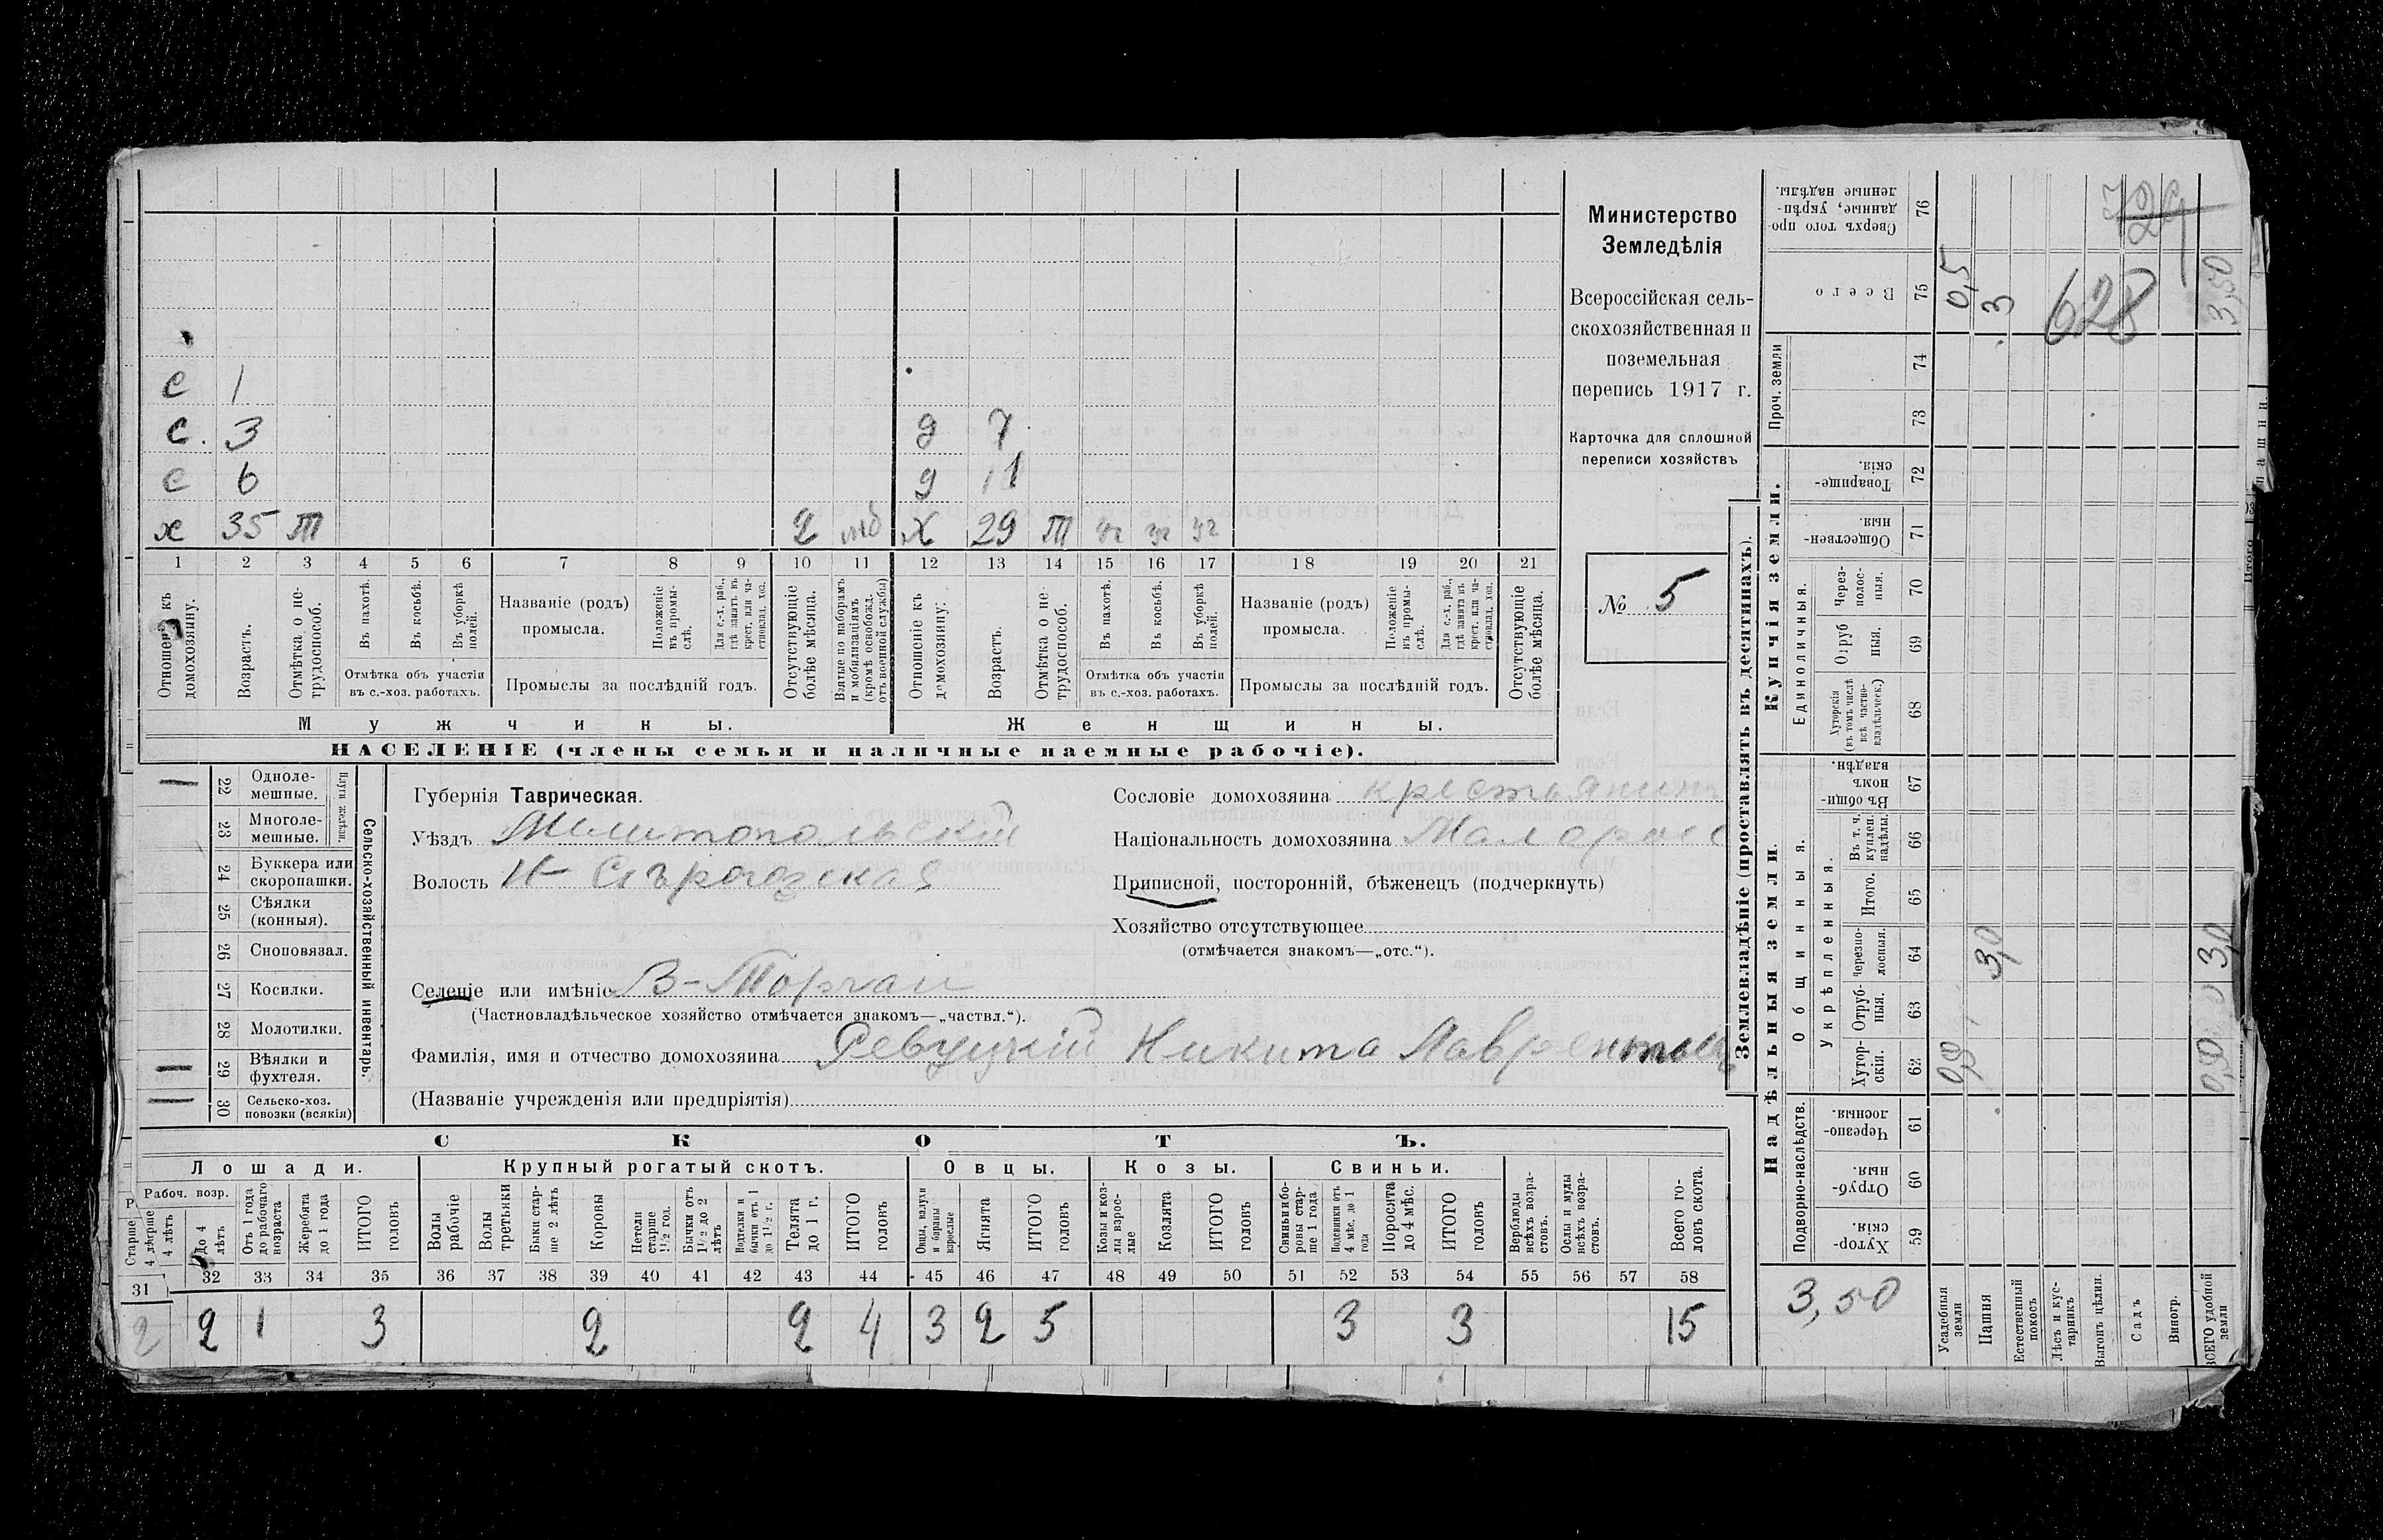 с 1
с. 3 д 7
с 6 д 11
х 35 т 2 мб х 29 т уч уч уч
1 2 3 4 5 6 7 8 9 10 11 12 13 14 15 16 17 18 19 20 21
Отношеніе къ домохозяину.
Возрастъ.
Отмѣтка о не-трудоспособ.
Въ пахотѣ.
Въ косьбѣ.
Въ уборкѣ полей.
Отмѣтка объ участіи
въ с.-хоз. работахъ.
Названіе (родъ)
промысла.
Положеніе въ промы-слѣ.
Для с.-х. раб., гдѣ занятъ въ крест. или ча-стновлад. хоз.
Промыслы за послѣдній годъ.
Отсутствующіе болѣе мѣсяца.
Взятые по наборамъ и мобилизаціямъ (кромѣ освобожд. отъ военной службы)
Отношеніе къ домохозяину.
Возрастъ.
Отмѣтка о не-трудоспособ.
Въ пахотѣ.
Въ косьбѣ.
Въ уборкѣ полей.
Отмѣтка объ участіи
въ с.-хоз. работахъ.
Названіе (родъ)
промысла.
Положеніе въ промы-слѣ.
Для с.-х. раб., гдѣ занята въ крест. или ча-стновлад. хоз.
Промыслы за послѣдній годъ.
Отсутствующіе болѣе мѣсяца.
Мужчины. Женщины.
НАСЕЛЕНІЕ (члены семьи и наличные наемные рабочіе).
Министерство
Земледѣлія
Всероссійская сель-
скохозяйственная и
поземельная
перепись 1917 г.
Карточка для сплошной
переписи хозяйствъ
№ 5
Сельско-хозяйственный инвентарь.
Плуги желѣзн.
22 Одноле-мешные.
23 Многоле-мешные.
24 Буккера или скоропашки.
25 Сѣялки (конныя).
26 Сноповязал.
27 Косилки.
28 Молотилки.
29 Вѣялки и фухтеля.
30 Сельско-хоз. повозки (всякія)
Губернія Таврическая.
Уѣздъ Мелитопольскій
Волость Н-Сѣрогозская
Сословіе домохозяина крестьянинъ
Національность домохозяина Малоросс
Приписной, посторонній, бѣженецъ (подчеркнуть)
Хозяйство отсутствующее
(отмѣчается знакомъ—„отс.“).
Селеніе или имѣніе В-Торгаи
(Частновладѣльческое хозяйство отмѣчается знакомъ—„частвл.“).
Фамилія, имя и отчество домохозяина Ревуцкій Никита Лаврентьев
(Названіе учрежденія или предпріятія)
СКОТЪ.
Лошади. Крупный рогатый скотъ. Овцы. Козы. Свиньи.
Рабоч. возр.
Старше 4 лѣтъ
До 4 лѣтъ
Отъ 1 года до рабочаго возраста
Жеребята до 1 года
ИТОГО головъ
Волы рабочіе
Волы третьяки
Быки стар-ше 2 лѣтъ
Коровы
Нетели старше 1½ год.
Бычки отъ 1½ до 2 лѣтъ
Подтелки и бычки отъ 1 до 1½ г.
Телята до 1 г.
ИТОГО головъ
Овцы, валухи и бараны взрослые
Ягнята
ИТОГО головъ
Козы и коз-лы взрос-лые
Козлята
ИТОГО головъ
Свиньи и бо-ровы стар-ше 1 года
Подсвинки отъ 4 мѣс. до 1 года
Поросята до 4 мѣс.
ИТОГО головъ
Верблюды всѣхъ возра-стовъ.
Ослы и мулы всѣхъ возра-стовъ.
Всего го-ловъ скота.
31 32 33 34 35 36 37 38 39 40 41 42 43 44 45 46 47 48 49 50 51 52 53 54 55 56 57 58
2 2 1 3 2 2 4 3 2 5 3 3 15
Землевладѣніе (проставлять въ десятинахъ).
Надѣльныя земли. Купчія земли.
Проч. земли
Сверхъ того про-данные, укрѣп-ленные надѣлы.
76
Всего
75
0,5
3
628
3,50
74
73
Товарище-скія.
72
Обществен-ныя.
71
Единоличныя.
Через-полос-ныя.
70
Отруб-ныя.
69
Хуторскія (въ томъ числѣ всѣ частно-владѣльческ.)
68
Въ общи-номъ владѣн.
67
Общинныя.
Въ т. ч. куплен. надѣлы.
66
Укрѣпленныя.
Итого.
65
Черезпо-лосныя.
64
3,0
3,0
Отруб-ныя.
63
Хутор-скія.
62
0,50
0,50
Подворно-наслѣдств.
Черезпо-лосныя.
61
Отруб-ныя.
60
Хутор-скія.
59
3,50
Усадебныя земли
Пашня
Естественный покосъ
Лѣсъ и кус-тарникъ
Выгонъ цѣлин.
Садъ
Виногр.
ВСЕГО удобной земли